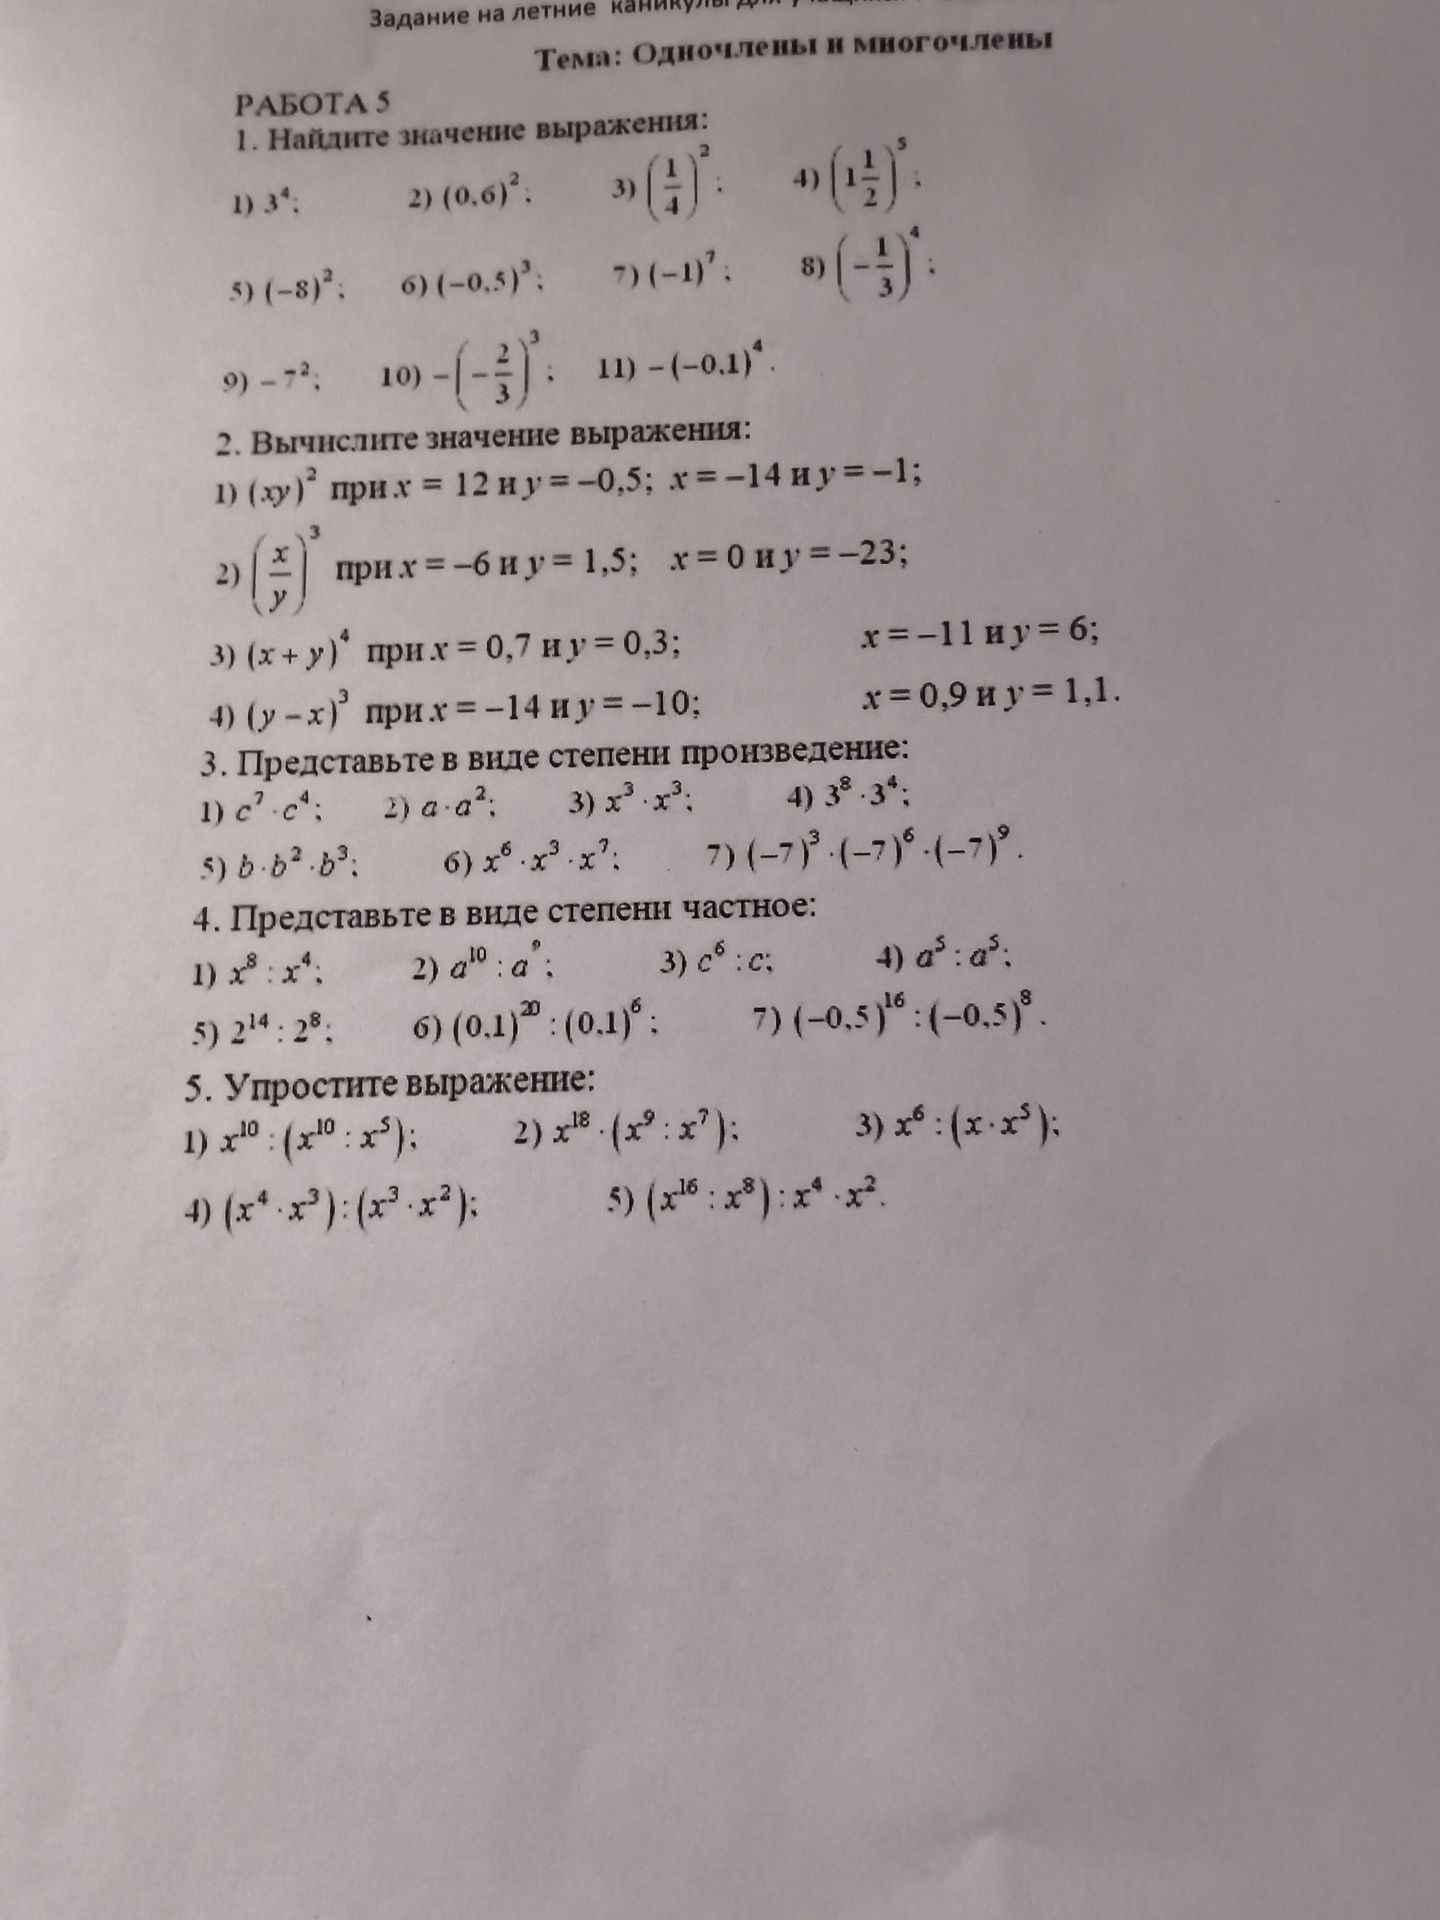 Задание на летние каникулы для
Тема: Одночлены и многочлены
РАБОТА 5
1. Найдите значение выражения:
1) 3⁴; 2) (0,6)²; 3) (1/4)²; 4) (1 1/2)⁵;
5) (−8)²; 6) (−0,5)³; 7) (−1)⁷; 8) (−1/3)⁴;
9) −7²; 10) −(−2/3)³; 11) −(−0,1)⁴.
2. Вычислите значение выражения:
1) (xy)² при x = 12 и y = −0,5; x = −14 и y = −1;
2) (x/y)³ при x = −6 и y = 1,5; x = 0 и y = −23;
3) (x + y)⁴ при x = 0,7 и y = 0,3; x = −11 и y = 6;
4) (y − x)³ при x = −14 и y = −10; x = 0,9 и y = 1,1.
3. Представьте в виде степени произведение:
1) c⁷ · c⁴; 2) a · a²; 3) x³ · x³; 4) 3⁸ · 3⁴;
5) b · b² · b³; 6) x⁶ · x³ · x⁷; 7) (−7)³ · (−7)⁶ · (−7)⁹.
4. Представьте в виде степени частное:
1) x⁸ : x⁴; 2) a¹⁰ : a⁹; 3) c⁶ : c; 4) a⁵ : a⁵;
5) 2¹⁴ : 2⁸; 6) (0,1)²⁰ : (0,1)⁶; 7) (−0,5)¹⁶ : (−0,5)⁸.
5. Упростите выражение:
1) x¹⁰ : (x¹⁰ : x⁵); 2) x¹⁸ · (x⁹ : x⁷); 3) x⁶ : (x · x⁵);
4) (x⁴ · x³) : (x³ · x²); 5) (x¹⁶ : x⁸) : x⁴ · x².